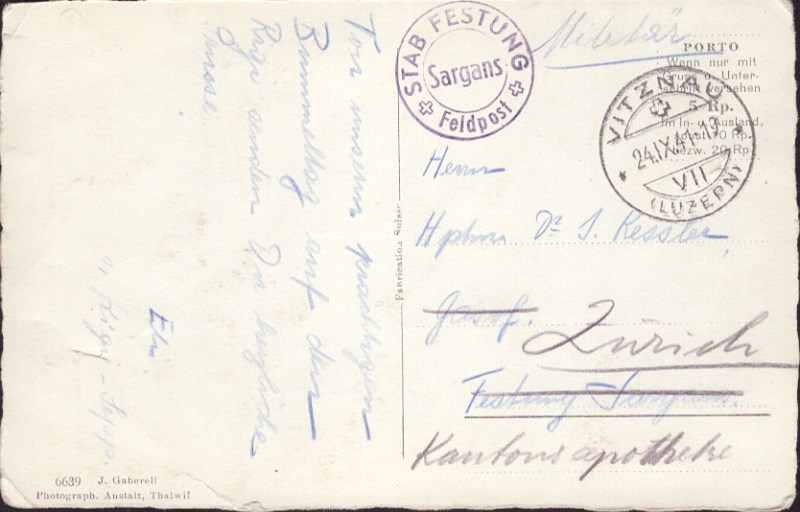 Von unserm prächtigen
Bummeltag auf den
Rigi senden Dir herzliche
Grüsse
Eli
u. Rigi-Sepp.
6639 J. Gaberell
Photograph. Anstalt, Thalwil
Fabrication Suisse
STAB FESTUNG
Sargans
Feldpost
Militär
PORTO
Wenn nur mit
Gruss o. Unter-
schrift versehen
5 Rp.
im In- u. Ausland,
sonst 10 Rp.
bezw. 20 Rp.
VITZNAU
24.IX.41-19
VII
(LUZERN)
Herrn
Hptm. Dr. J. Kessler
Zürich
Festung Sargans.
Kantonsapotheke